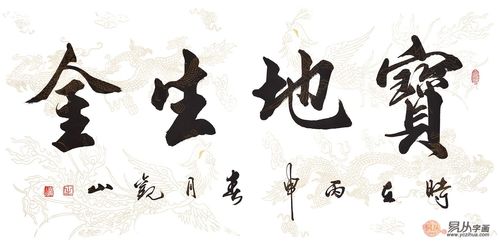 寶地生金
時在丙申春月觀山
易从字画
www.yczihua.com